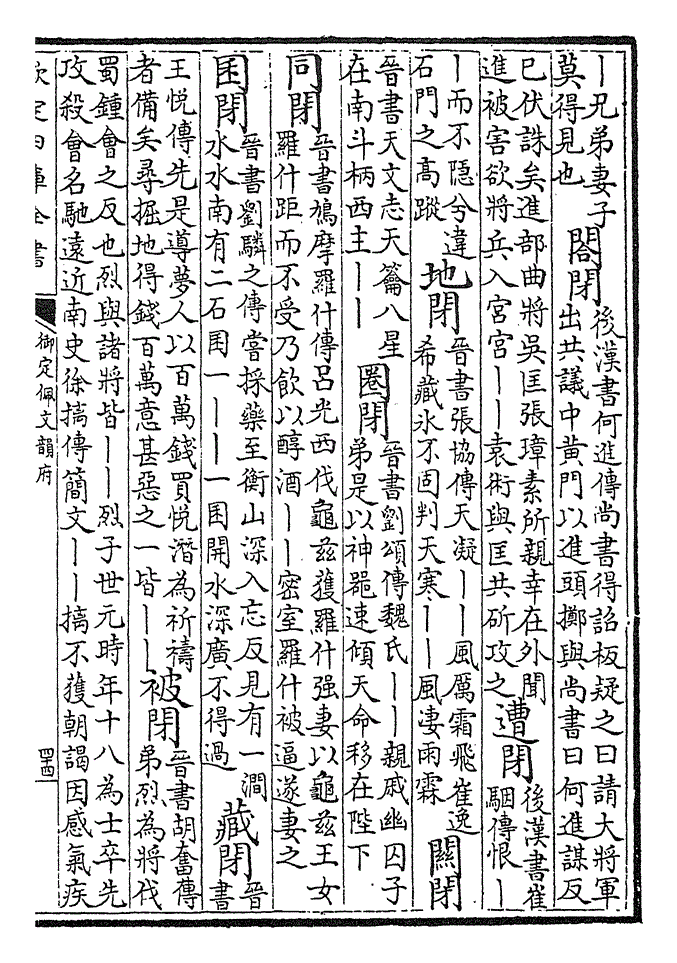 丨兄弟妻子
莫得見也
閤閉
後漢書何進傳尚書得詔板疑之曰請大將軍
出共議中黄門以進頭擲與尚書曰何進謀反
已伏誅矣進部曲將吳匡張璋素所親幸在外聞
進被害欲將兵入宮宮丨丨袁術與匡共斫攻之
遭閉
後漢書崔
駰傳恨丨
丨而不隱兮違
石門之高蹤
地閉
晉書張協傳天凝丨丨風厲霜飛崔逸
希藏氷不固判天寒丨丨風凄雨霖
關閉
晉書天文志天籥八星
在南斗柄西主丨丨
圈閉
晉書劉頌傳魏氏丨丨親戚幽囚子
弟是以神器速傾天命移在陛下
同閉
晉書鳩摩羅什傳呂光西伐龜兹獲羅什强妻以龜兹王女
羅什距而不受乃飲以醇酒丨丨密室羅什被逼遂妻之
囷閉
晉書劉驎之傳嘗採藥至衡山深入忘反見有一澗
水水南有二石囷一丨丨一囷開水深廣不得過
藏閉
晉
書
王悅傳先是導夢人以百萬錢買悅潛為祈禱
者備矣尋掘地得錢百萬意甚惡之一皆丨丨
被閉
晉書胡奮傳
弟烈為將伐
蜀鍾會之反也烈與諸將皆丨丨烈子世元時年十八為士卒先
攻殺會名馳遠近南史徐摛傳簡文丨丨摛不獲朝謁因感氣疾
欽定四庫全書
御定佩文韻府
四十四